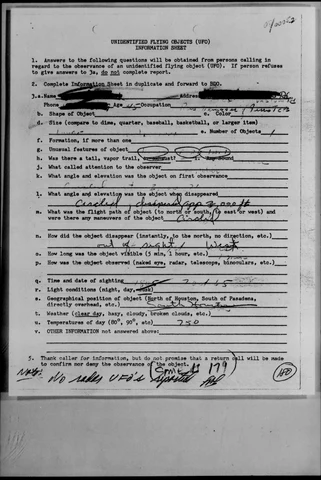 UNIDENTIFIED FLYING OBJECTS (UFO)
INFORMATION SHEET
1. Answers to the following questions will be obtained from persons calling in
regard to the observance of an unidentified flying object (UFO). If person refuses
to give answers to 3a, do not complete report.
2. Complete Information Sheet in duplicate and forward to
3.a. Name Address
Phone Age 45 Occupation
b. Shape of Object c. Color
d. Size (compare to dime, quarter, baseball, basketball, or larger item)
e. Number of Objects 1
f. Formation, if more than one
g. Unusual features of object
h. Was there a tail, vapor trail, Any sound
i. What called attention to the observer
k. What angle and elevation was the object on first observance
l. What angle and elevation was the object when disappeared
Circled
m. What was the flight path of object (to north or south, to east or west) and
were there any maneuvers of the object Circled
n. How did the object disappear (instantly, to the north, no direction, etc.)
out of sight West
o. How long was the object visible (5 min, 1 hour, etc.)
p. How was the object observed (naked eye, radar, telescope, binoculars, etc.)
q. Time and date of sighting
r. Light conditions (night, day,
s. Geographical position of object (North of Houston, South of Pasadena,
directly overhead, etc.) South Houston
t. Weather (clear day, hazy, cloudy, broken clouds, etc.)
u. Temperatures of day (80°, 90°, etc) 75°
v. OTHER INFORMATION not answered above:
5. Thank caller for information, but do not promise that a return call will be made
to confirm nor deny the observance of the object.
Note: No other UFO's reported
179
180